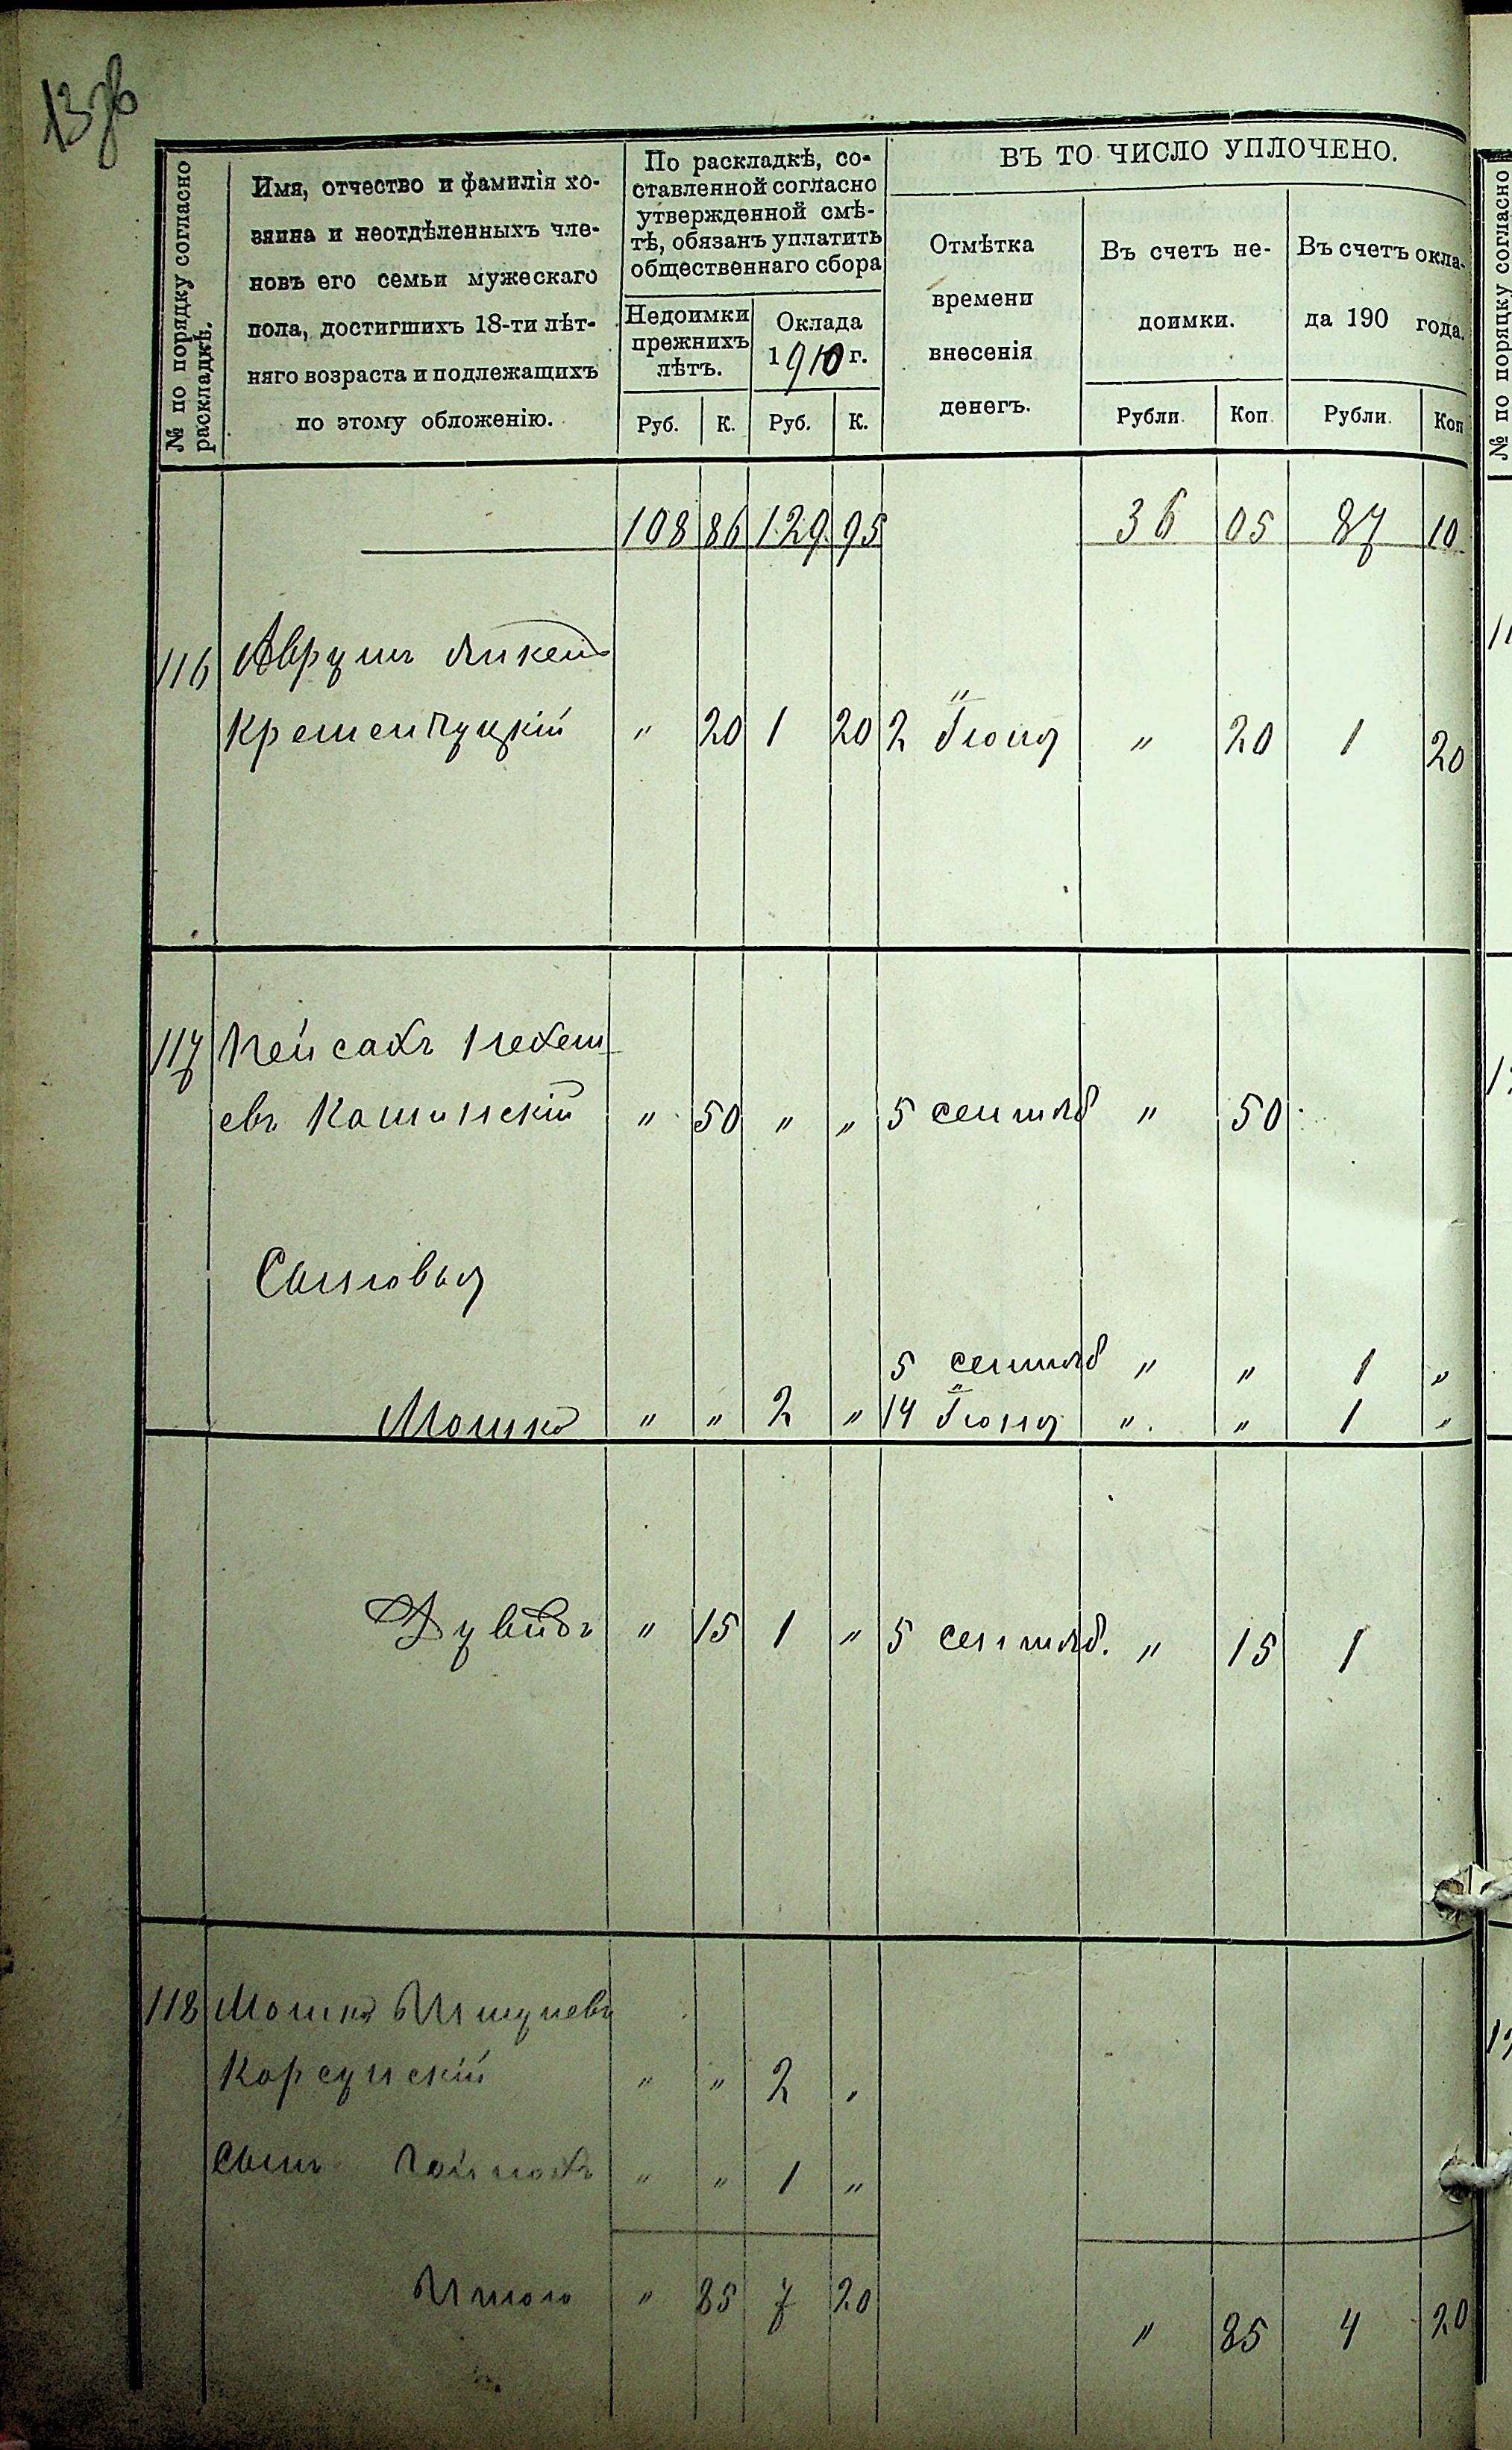 № по порядку согласно раскладкѣ.
Имя, отчество и фамилія хо-
зяина и неотдѣленныхъ чле-
новъ его семьи мужескаго
пола, достигшихъ 18-ти лѣт-
няго возраста и подлежащихъ
по этому обложенію.
По раскладкѣ, со-
ставленной согласно
утвержденной смѣ-
тѣ, обязанъ уплатить
общественнаго сбора
Недоимки
прежнихъ
лѣтъ.
Оклада
1910 г.
Руб. К. Руб. К.
ВЪ ТО ЧИСЛО УПЛОЧЕНО.
Отмѣтка
времени
внесенія
денегъ.
Въ счетъ не-
доимки.
Рубли. Коп.
Въ счетъ окла-
да 190 года.
Рубли. Коп
№ по порядку согласно
108 86 129 95 36 05 87 10
116 Аврумъ
Кременчуцкій " 20 1 20 2 Іюня " 20 1 20
117 Пейсахъ
евъ Кашинскій " 50 " " 5 сентяб " 50
Сыновья
5 сентяб " " 1 "
Мошко " " 2 " 14 Іюня " " 1 "
Дувидъ " 15 1 " 5 сентяб. " 15 1
118 Мошко
Корсунскій " " 2 "
Сынъ " " 1 "
Итого " 85 7 20 " 85 4 20